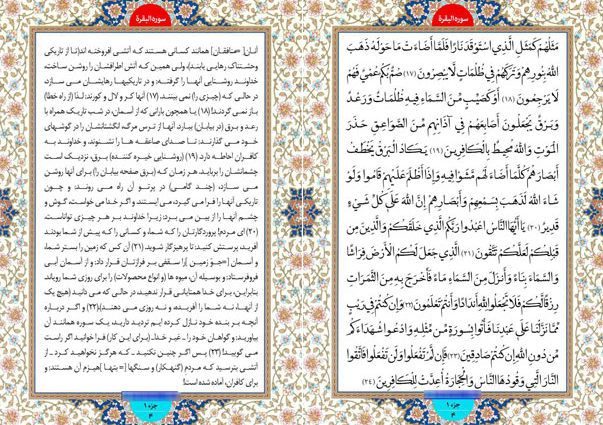 سورة البقرة
مَثَلُهُمْ كَمَثَلِ الَّذِي اسْتَوْقَدَ نَارًا فَلَمَّا أَضَاءَتْ مَا حَوْلَهُ ذَهَبَ
اللَّهُ بِنُورِهِمْ وَتَرَكَهُمْ فِي ظُلُمَاتٍ لَّا يُبْصِرُونَ (۱۷) صُمٌّ بُكْمٌ عُمْيٌ فَهُمْ
لَا يَرْجِعُونَ (۱۸) أَوْ كَصَيِّبٍ مِّنَ السَّمَاءِ فِيهِ ظُلُمَاتٌ وَرَعْدٌ
وَبَرْقٌ يَجْعَلُونَ أَصَابِعَهُمْ فِي آذَانِهِم مِّنَ الصَّوَاعِقِ حَذَرَ
الْمَوْتِ وَاللَّهُ مُحِيطٌ بِالْكَافِرِينَ (۱۹) يَكَادُ الْبَرْقُ يَخْطَفُ
أَبْصَارَهُمْ كُلَّمَا أَضَاءَ لَهُم مَّشَوْا فِيهِ وَإِذَا أَظْلَمَ عَلَيْهِمْ قَامُوا وَلَوْ
شَاءَ اللَّهُ لَذَهَبَ بِسَمْعِهِمْ وَأَبْصَارِهِمْ إِنَّ اللَّهَ عَلَىٰ كُلِّ شَيْءٍ
قَدِيرٌ (۲۰) يَا أَيُّهَا النَّاسُ اعْبُدُوا رَبَّكُمُ الَّذِي خَلَقَكُمْ وَالَّذِينَ مِن
قَبْلِكُمْ لَعَلَّكُمْ تَتَّقُونَ (۲۱) الَّذِي جَعَلَ لَكُمُ الْأَرْضَ فِرَاشًا
وَالسَّمَاءَ بِنَاءً وَأَنزَلَ مِنَ السَّمَاءِ مَاءً فَأَخْرَجَ بِهِ مِنَ الثَّمَرَاتِ
رِزْقًا لَّكُمْ فَلَا تَجْعَلُوا لِلَّهِ أَندَادًا وَأَنتُمْ تَعْلَمُونَ (۲۲) وَإِن كُنتُمْ فِي رَيْبٍ
مِّمَّا نَزَّلْنَا عَلَىٰ عَبْدِنَا فَأْتُوا بِسُورَةٍ مِّن مِّثْلِهِ وَادْعُوا شُهَدَاءَكُم
مِّن دُونِ اللَّهِ إِن كُنتُمْ صَادِقِينَ (۲۳) فَإِن لَّمْ تَفْعَلُوا وَلَن تَفْعَلُوا فَاتَّقُوا
النَّارَ الَّتِي وَقُودُهَا النَّاسُ وَالْحِجَارَةُ أُعِدَّتْ لِلْكَافِرِينَ (۲۴)
جزء ۱
۴
سورة البقرة
آنان [= منافقان] همانند کسانی هستند که آتشی افروخته اند (تا از تاریکی
وحشتناک رهایی یابند)، ولی همین که آتش اطرافشان را روشن ساخت
خداوند روشنایی آنها را گرفته؛ و در تاریکیها رهایشان می سازد،
در حالی که (چیزی را) نمی بینند. (۱۷) آنها کر و لال و کورند؛ لذا (از راه خطا)
باز نمی گردند! (۱۸) یا همچون بارانی که از آسمان، در شب تاریک همراه با
رعد و برق (در بیابان) ببارد. آنها از ترس مرگ انگشتانشان را در گوشهای
خود می گذارند؛ تا صدای صاعقه ها را نشنوند. و خداوند به
کافران احاطه دارد. (۱۹) (روشنایی خیره کننده) برق، نزدیک است
چشمانشان را برباید. هر زمان که (برق صفحه بیابان را) برای آنها روشن
می سازد، (چند گامی) در پرتو آن راه می روند؛ و چون
تاریکی آنها را فرا می گیرد، می ایستند. و اگر خدا می خواست، گوش و
چشم آنها را از بین می برد؛ زیرا خداوند بر هر چیزی تواناست.
(۲۰) ای مردم! پروردگارتان را که شما، و کسانی را که پیش از شما بودند
آفرید، پرستش کنید؛ تا پرهیزگار شوید. (۲۱) آن کس که زمین را بستر شما،
و آسمان [= جو زمین] را سقفی بر فرازتان قرار داد؛ و از آسمان آبی
فروفرستاد؛ و بوسیله آن، میوه ها (و انواع محصولات) را برای روزی شما رویاند
بنابراین، برای خدا همتایانی قرار ندهید، در حالی که می دانید (هیچ یک
از آنها، نه شما را آفریده، و نه روزی می دهند). (۲۲) و اگر درباره
آنچه بر بنده خود نازل کرده ایم تردید دارید، یک سوره همانند آن
بیاورید؛ و گواهان خود را ـ غیر خدا ـ (برای این کار) فراخوانید اگر راست
می گویید! (۲۳) پس اگر چنین نکنید ـ که هرگز نخواهید کرد ـ از
آتشی بترسید که مردم (گنهکار) و سنگها [= بتها] هیزم آن هستند؛ و
برای کافران، آماده شده است!
جزء ۱
۴